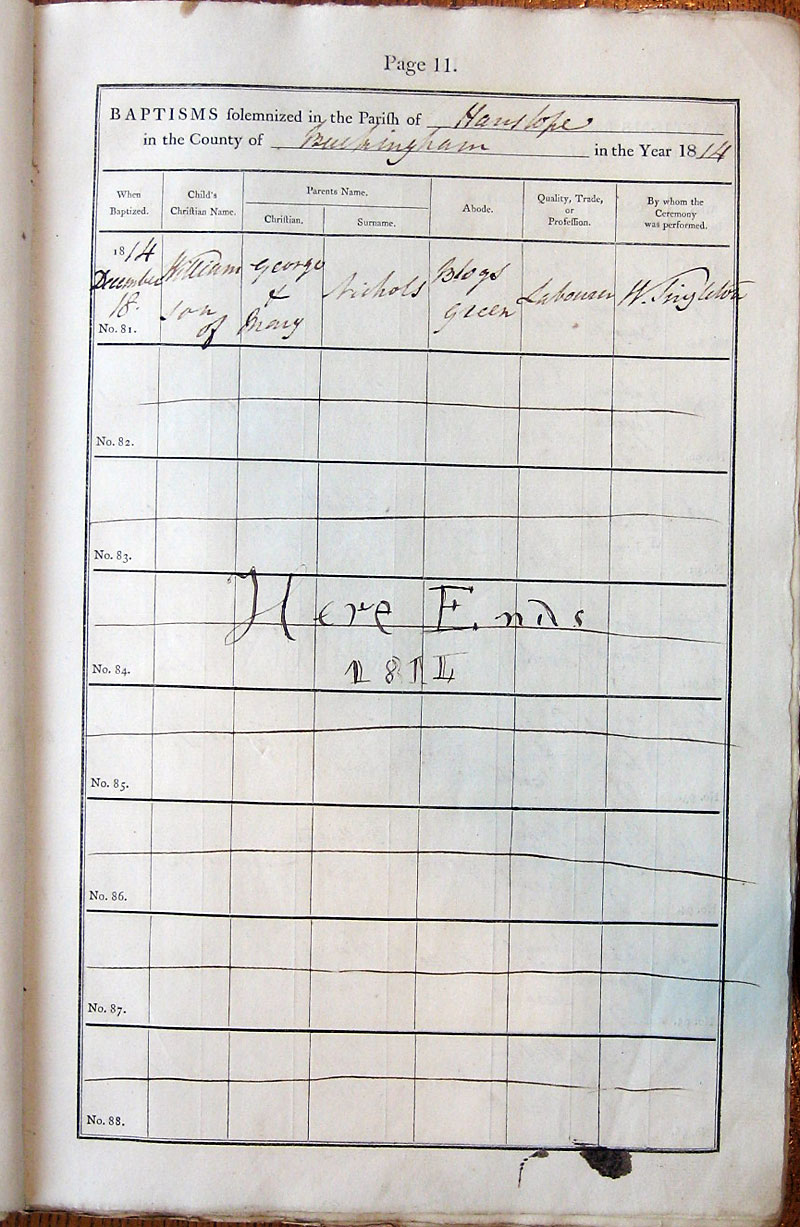 Page 11.
BAPTISMS ſolemnized in the Pariſh of Hanslope
in the County of Buckingham in the Year 1814
When Baptized.
Child's Chriſtian Name.
Parents Name.
Chriſtian.
Surname.
Abode.
Quality, Trade, or Profeſſion.
By whom the Ceremony was performed.
1814
December
18.
No. 81.
William
son
of
George
&
Mary
Nichols
Green
Labourer
W. Singleton
No. 82.
No. 83.
Here Ends
1814
No. 84.
No. 85.
No. 86.
No. 87.
No. 88.